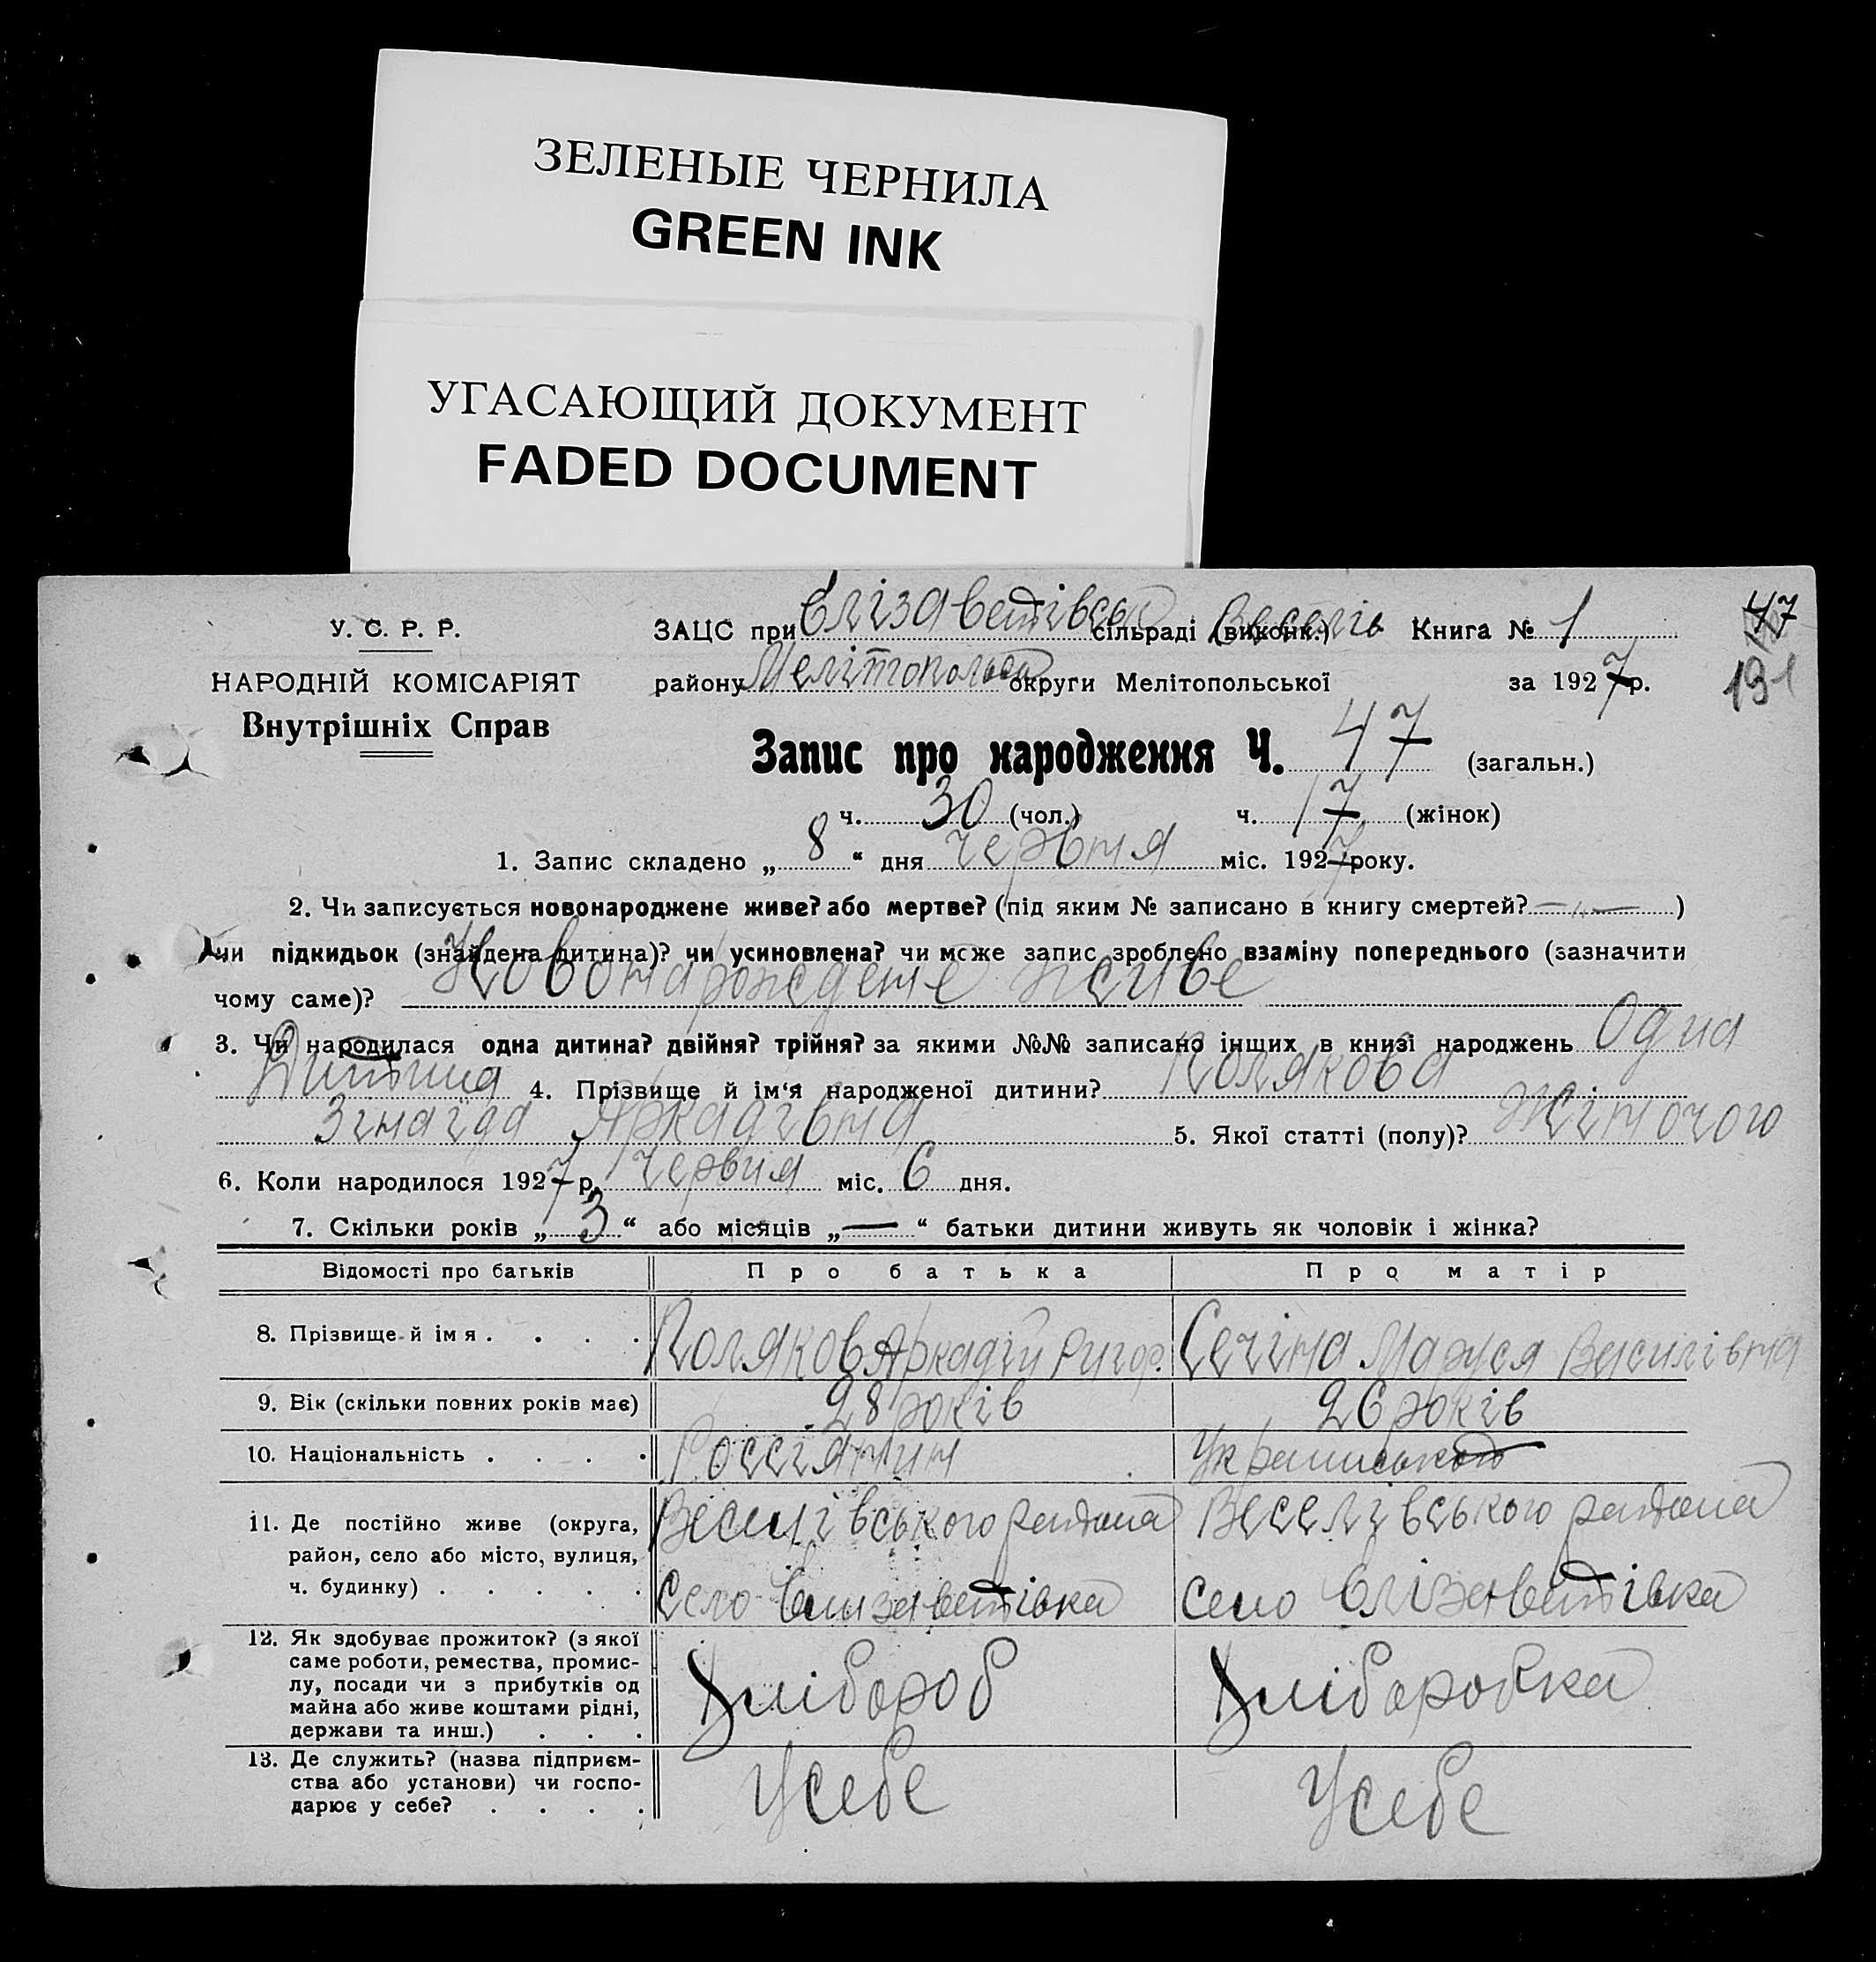 ЗЕЛЕНЫЕ ЧЕРНИЛА
GREEN INK
УГАСАЮЩИЙ ДОКУМЕНТ
FADED DOCUMENT
У. С. Р. Р.
НАРОДНІЙ КОМІСАРІЯТ
Внутрішніх Справ
ЗАЦС при Єлізаветівськ сільраді (виконк.) Веселів Книга № 1
47
району Мелітопольськ округи Мелітопольської за 1927 р.
191
Запис про народження Ч. 47 (загальн.)
ч. 30 (чол.) ч. 17 (жінок)
1. Запис складено „ 8 “ дня червня міс. 1927 року.
2. Чи записується новонароджене живе? або мертве? (під яким № записано в книгу смертей? —„— )
чи підкидьок (знайдена дитина)? чи усиновлена? чи може запис зроблено взаміну попереднього (зазначити
чому саме)? Новонарождене живе
3. Чи народилася одна дитина? двійня? трійня? за якими №№ записано інших в книзі народжень Одна
Дитина 4. Прізвище й ім‘я народженої дитини? Полякова
Зінаїда Аркадівна 5. Якої статті (полу)? Жіночого
6. Коли народилося 1927 р. червня міс. 6 дня.
7. Скільки років „ 3 “ або місяців „ — “ батьки дитини живуть як чоловік і жінка?
Відомості про батьків Про батька Про матір
8. Прізвище й імя . . . . Поляков Аркадій Григор. Сечіна Маруся Василівна
9. Вік (скільки повних років має) 28 років 26 років
10. Національність . . . . Россіянин Украинськой
11. Де постійно живе (округа, Веселівського района Веселівського района
район, село або місто, вулиця,
ч. будинку) . . . . . Село Елизаветівка Село Єлізаветівка
12. Як здобуває прожиток? (з якої
саме роботи, ремества, промис-
лу, посади чи з прибутків од Хлібороб Хліборобка
майна або живе коштами рідні,
держави та инш.) . . .
13. Де служить? (назва підприєм-
ства або установи) чи госпо- У себе У себе
дарює у себе? . . . .